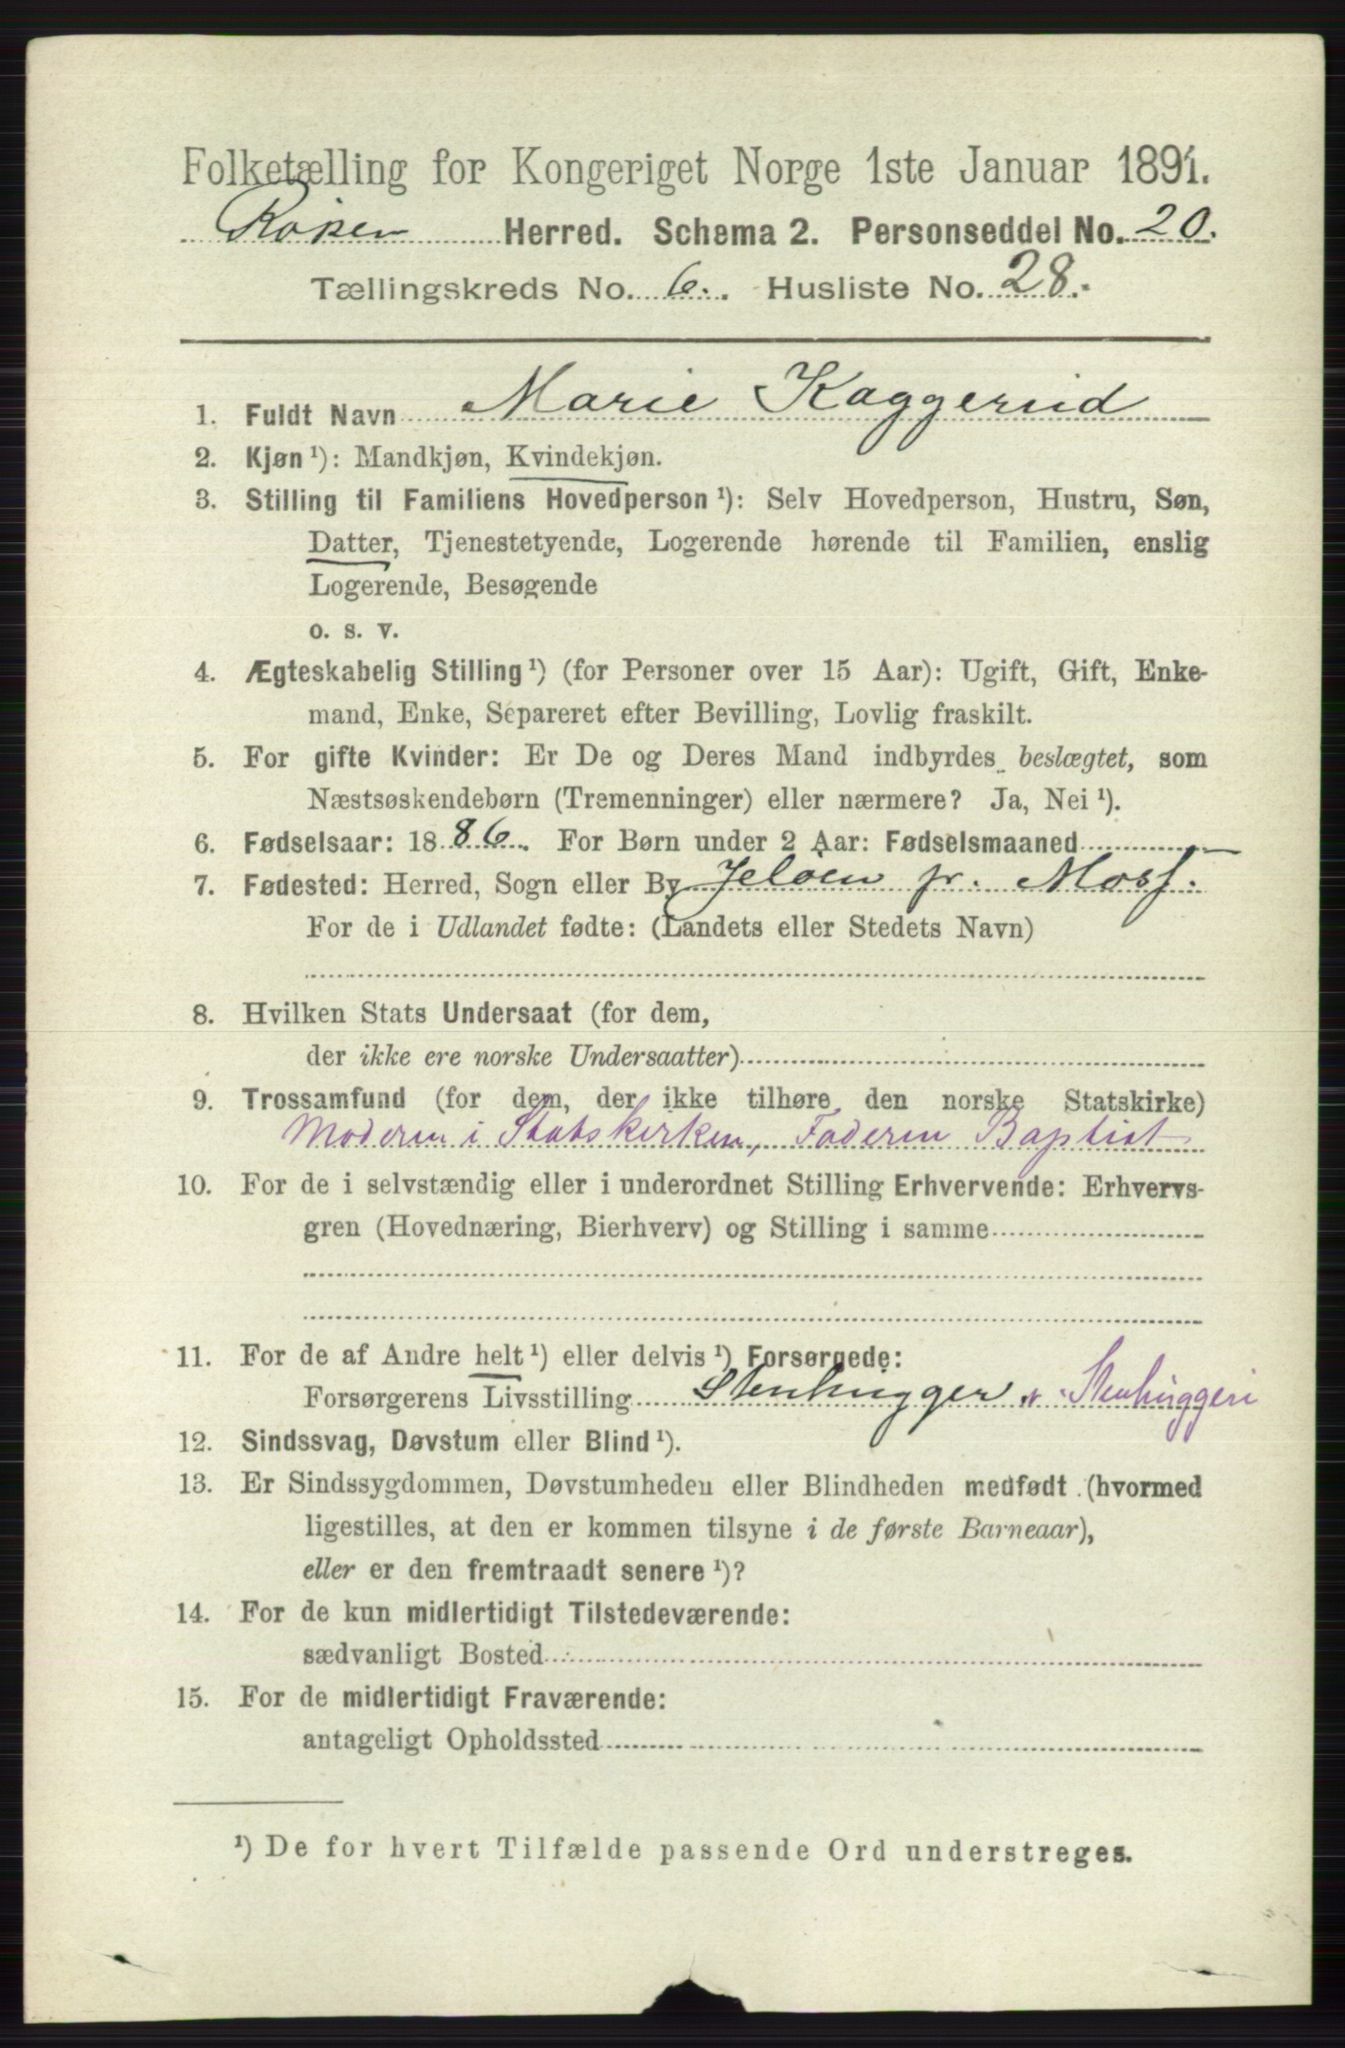 Folketælling for Kongeriget Norge 1ste Januar 1891.
Røken Herred. Schema 2. Personseddel No. 20.
Tællingskreds No. 6. Husliste No. 28.
1. Fuldt Navn Marie Kaggerud
2. Kjøn ¹): Mandkjøn, Kvindekjøn.
3. Stilling til Familiens Hovedperson ¹): Selv Hovedperson, Hustru, Søn,
Datter, Tjenestetyende, Logerende hørende til Familien, enslig
Logerende, Besøgende
o. s. v.
4. Ægteskabelig Stilling ¹) (for Personer over 15 Aar): Ugift, Gift, Enke-
mand, Enke, Separeret efter Bevilling, Lovlig fraskilt.
5. For gifte Kvinder: Er De og Deres Mand indbyrdes beslægtet, som
Næstsøskendebørn (Tremenninger) eller nærmere? Ja, Nei ¹).
6. Fødselsaar: 1886. For Børn under 2 Aar: Fødselsmaaned
7. Fødested: Herred, Sogn eller By Jeløen pr. Moss.
For de i Udlandet fødte: (Landets eller Stedets Navn)
8. Hvilken Stats Undersaat (for dem,
der ikke ere norske Undersaatter)
9. Trossamfund (for dem, der ikke tilhøre den norske Statskirke)
Moderen i Statskirken, Faderen Baptist
10. For de i selvstændig eller i underordnet Stilling Erhvervende: Erhvervs-
gren (Hovednæring, Bierhverv) og Stilling i samme
11. For de af Andre helt ¹) eller delvis ¹) Forsørgede:
Forsørgerens Livsstilling Stenhugger v. Stenhuggeri
12. Sindssvag, Døvstum eller Blind ¹).
13. Er Sindssygdommen, Døvstumheden eller Blindheden medfødt (hvormed
ligestilles, at den er kommen tilsyne i de første Barneaar),
eller er den fremtraadt senere ¹)?
14. For de kun midlertidigt Tilstedeværende:
sædvanligt Bosted
15. For de midlertidigt Fraværende:
antageligt Opholdssted
¹) De for hvert Tilfælde passende Ord understreges.